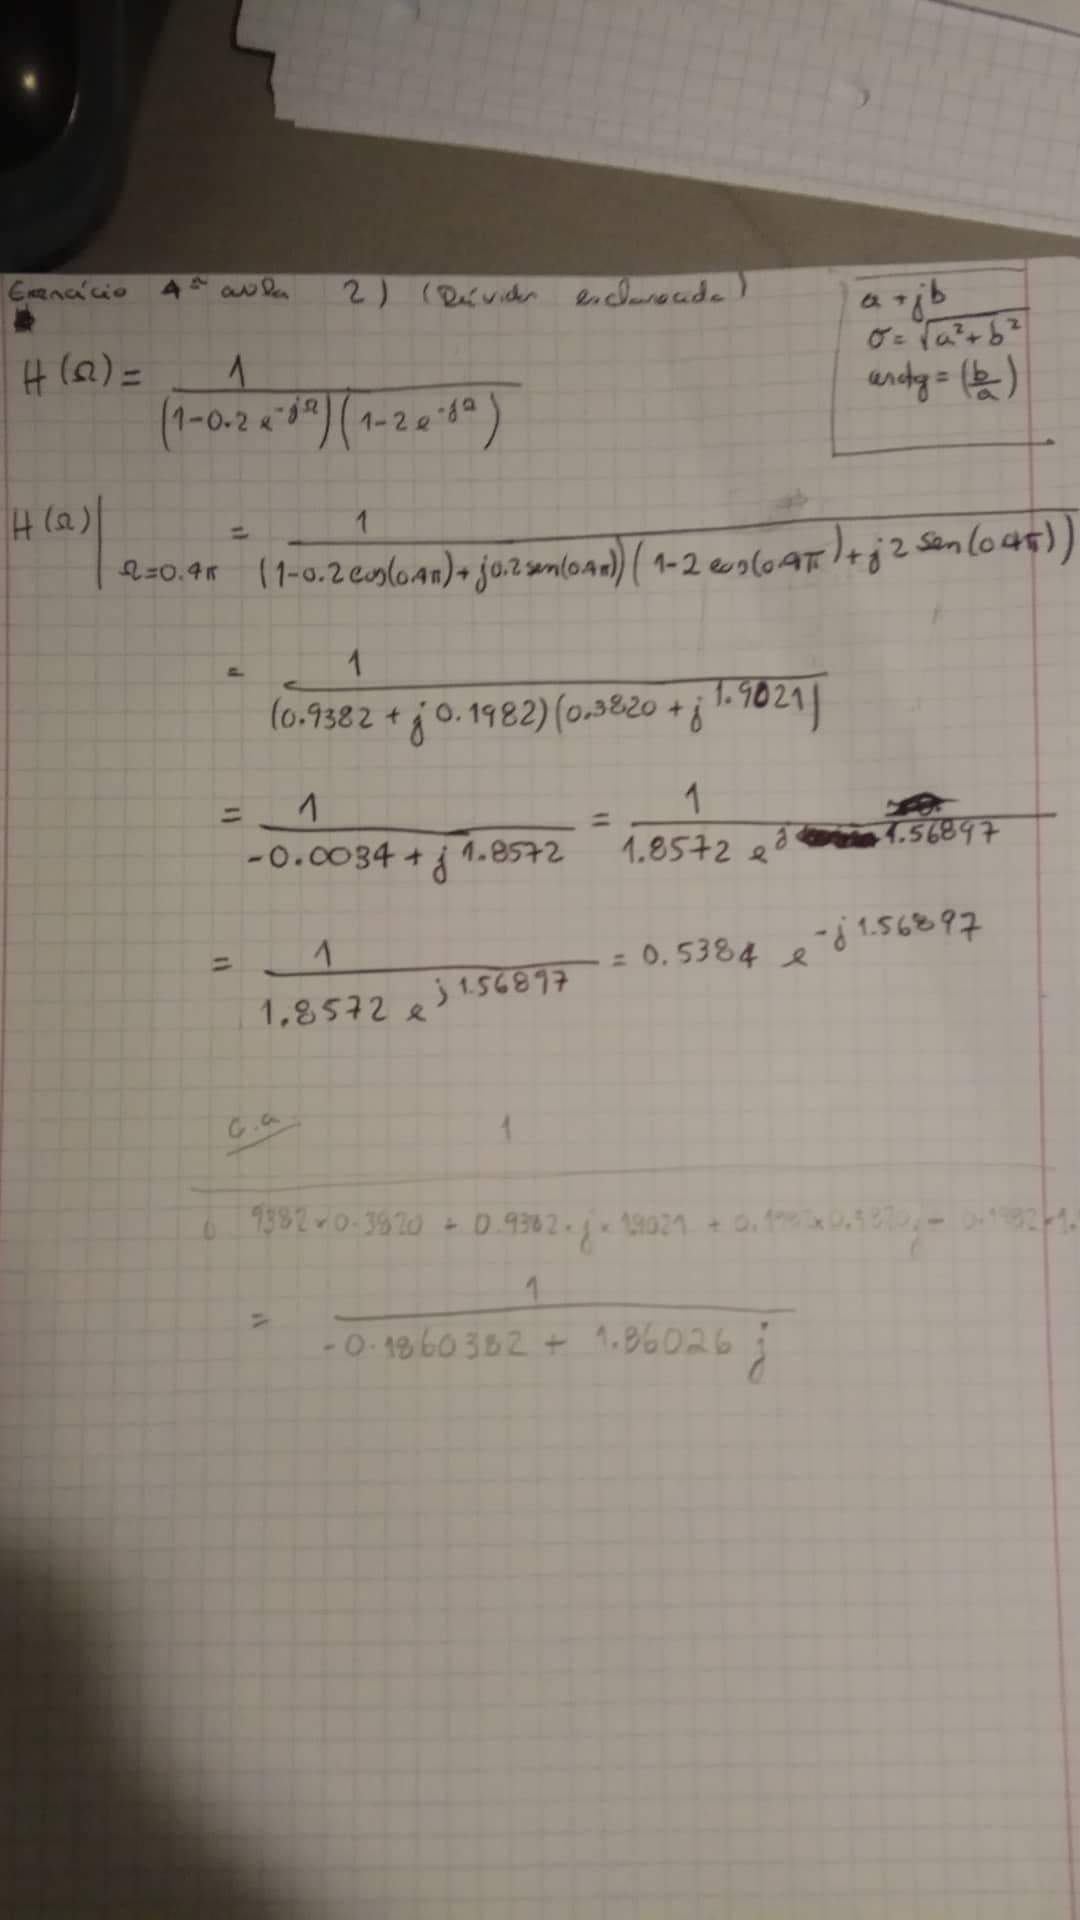 Exercício 4ª aula 2) (Dúvida esclarecida)
a + jb
σ = √(a² + b²)
arctg = (b/a)
H(Ω) = 1 / ((1-0.2 e^-jΩ)(1-2 e^-jΩ))
H(Ω)|Ω=0.4π = 1 / ((1-0.2 cos(0.4π) + j0.2 sen(0.4π))(1-2 cos(0.4π) + j2 sen(0.4π)))
= 1 / ((0.9382 + j0.1982)(0.3820 + j1.9021)
= 1 / (-0.0034 + j1.8572) = 1 / (1.8572 e^j1.56897)
= 1 / (1.8572 e^j1.56897) = 0.5384 e^-j1.56897
c.a
1 / (0 9382×0.3820 + 0.9382·j×1.9021 + 0.1982×0.3820j - 0.1982×1.
= 1 / (-0.1860382 + 1.86026 j)